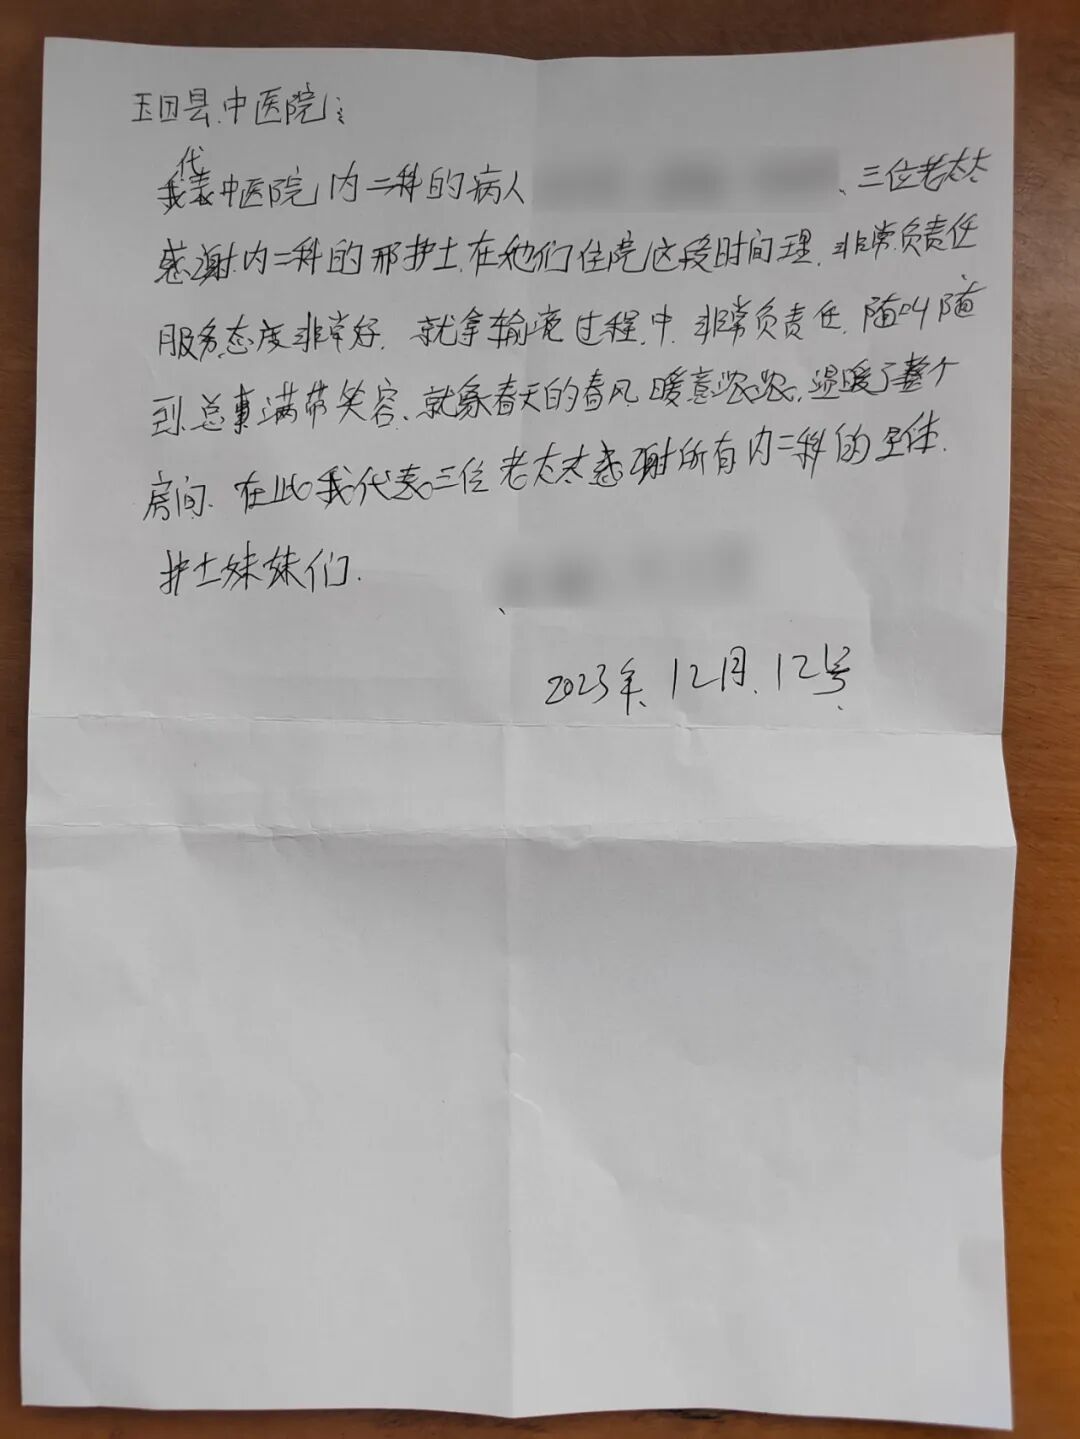 玉田县.中医院:
我代表中医院内二科的病人
、三位老太太
感谢内二科的邢护士.在他们住院这段时间理.非常负责任
服务态度非常好.就拿输液过程.中.非常负责任.随叫随
到.总事满带笑容、就象春天的春风.暖意浓浓.温暖了整个
房间.在此我代表三位老太太感谢所有内二科的全体.
护士妹妹们.
2023年.12月.12号